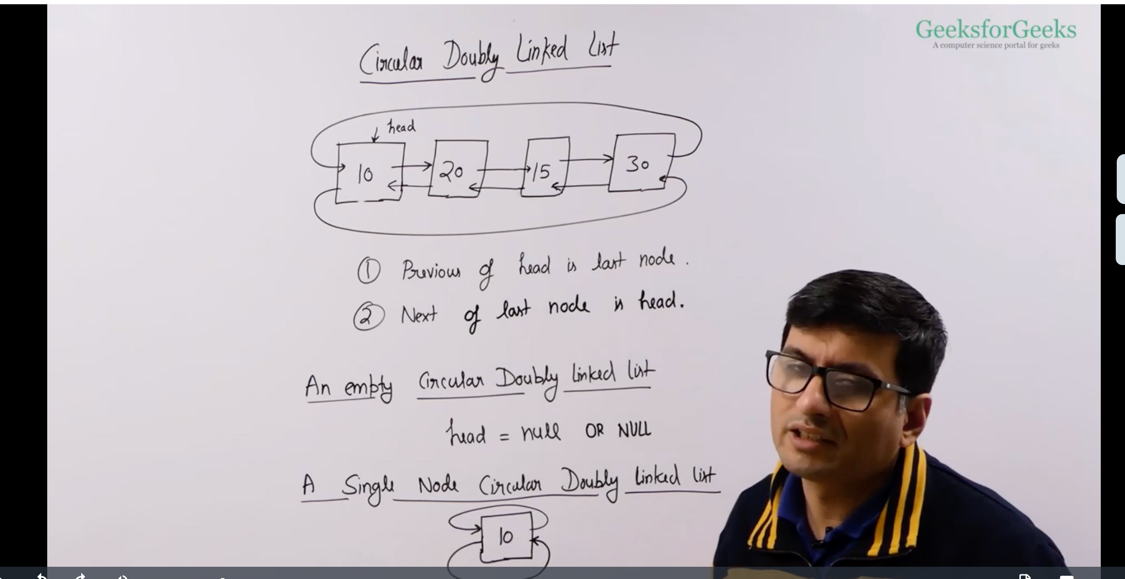 GeeksforGeeks
A computer science portal for geeks
Circular Doubly Linked List
head
10 20 15 30
① Previous of head is last node.
② Next of last node is head.
An empty Circular Doubly linked list
head = null OR NULL
A Single Node Circular Doubly linked list
10